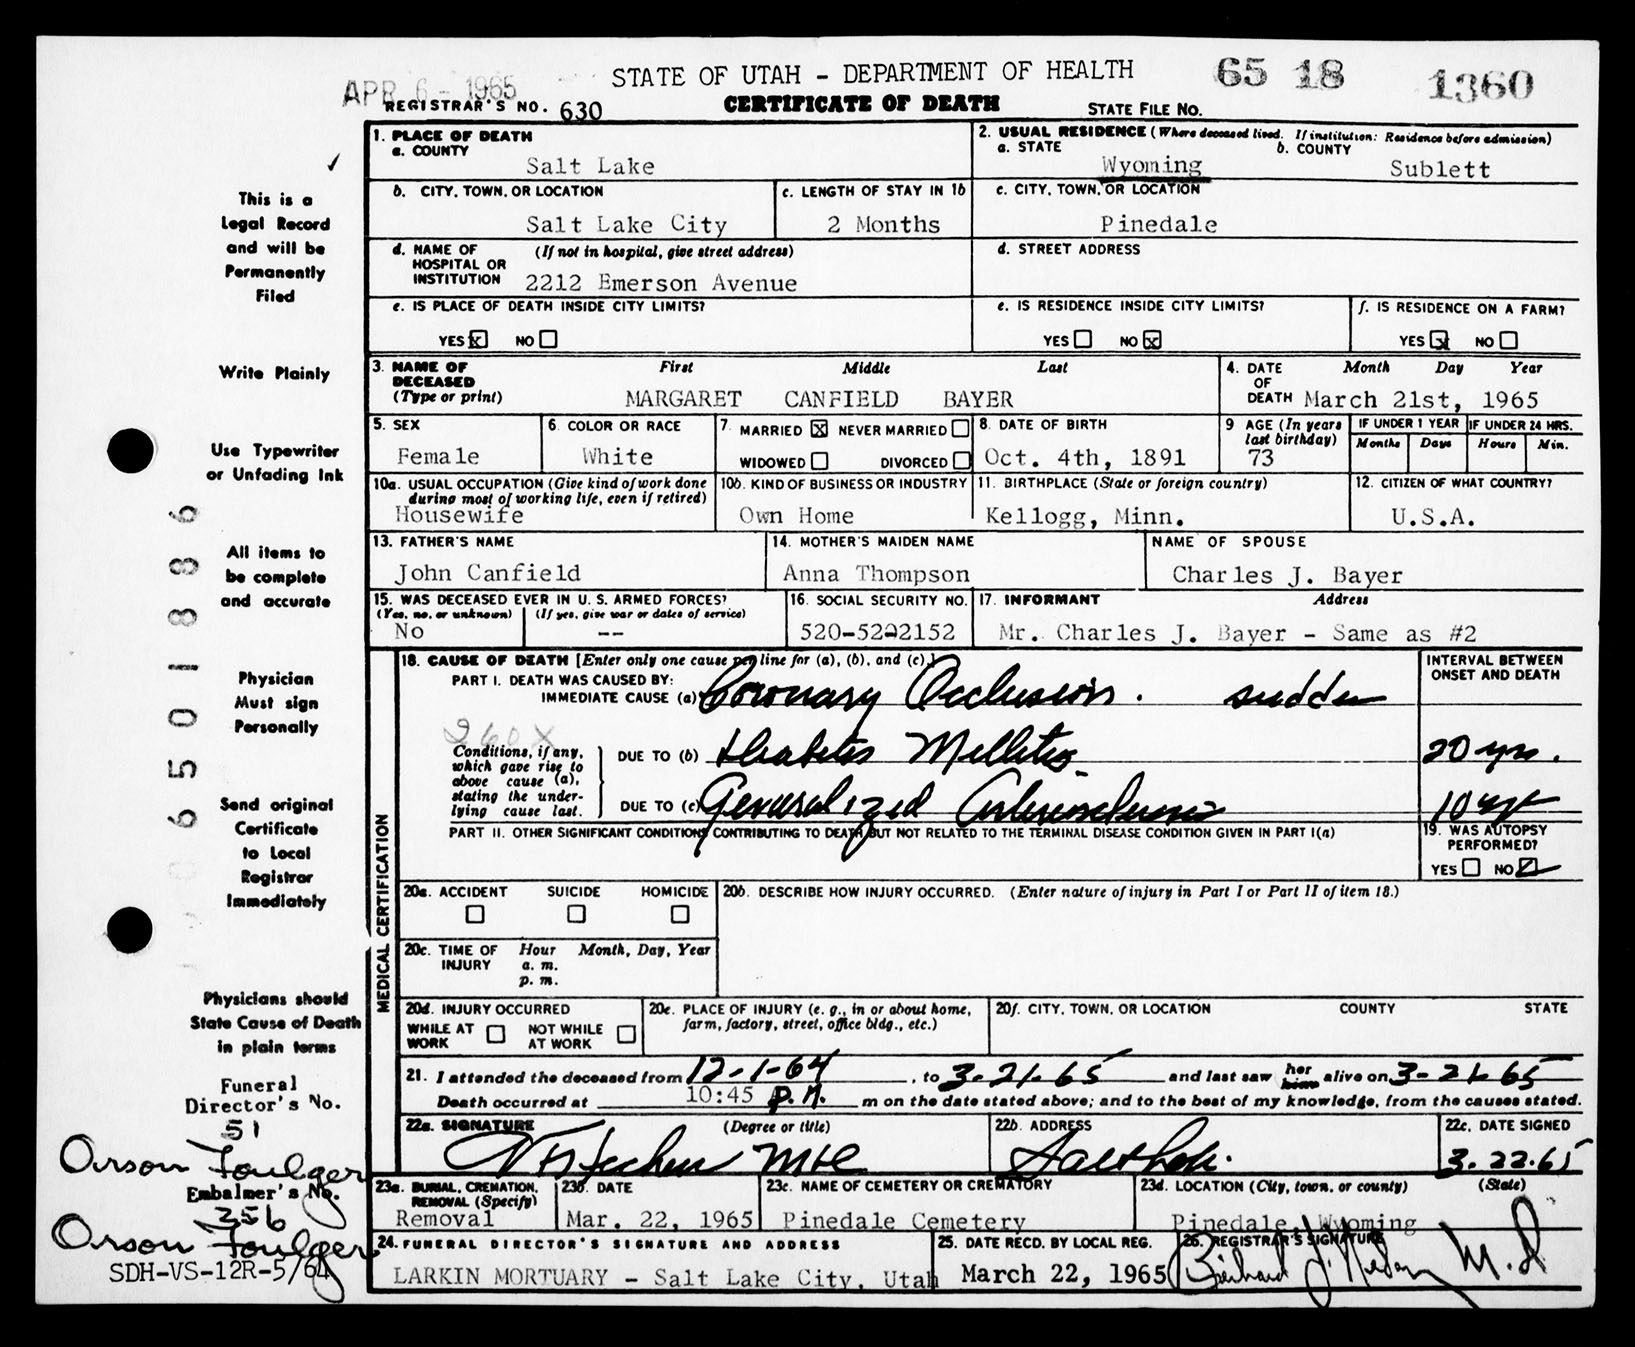 STATE OF UTAH - DEPARTMENT OF HEALTH
65 18 1360
APR 6 - 1965
REGISTRAR'S NO. 630
CERTIFICATE OF DEATH
STATE FILE NO.
This is a
Legal Record
and will be
Permanently
Filed
Write Plainly
Use Typewriter
or Unfading Ink
All items to
be complete
and accurate
Physician
Must sign
Personally
Send original
Certificate
to Local
Registrar
Immediately
Physicians should
State Cause of Death
in plain terms
Funeral
Director's No.
51
Orson Foulger
Embalmer's No.
256
Orson Foulger
SDH-VS-12R-5/64
6501886
1. PLACE OF DEATH
a. COUNTY
Salt Lake
2. USUAL RESIDENCE (Where deceased lived. If institution: Residence before admission)
a. STATE
Wyoming
b. COUNTY
Sublett
b. CITY, TOWN, OR LOCATION
Salt Lake City
c. LENGTH OF STAY IN 1b
2 Months
c. CITY, TOWN, OR LOCATION
Pinedale
d. NAME OF HOSPITAL OR INSTITUTION
(If not in hospital, give street address)
2212 Emerson Avenue
d. STREET ADDRESS
e. IS PLACE OF DEATH INSIDE CITY LIMITS?
YES x NO
e. IS RESIDENCE INSIDE CITY LIMITS?
YES NO x
f. IS RESIDENCE ON A FARM?
YES x NO
3. NAME OF DECEASED (Type or print)
First Middle Last
MARGARET CANFIELD BAYER
4. DATE OF DEATH
Month Day Year
March 21st, 1965
5. SEX
Female
6. COLOR OR RACE
White
7. MARRIED x NEVER MARRIED
WIDOWED DIVORCED
8. DATE OF BIRTH
Oct. 4th, 1891
9 AGE (In years last birthday)
73
IF UNDER 1 YEAR
Months Days
IF UNDER 24 HRS.
Hours Min.
10a. USUAL OCCUPATION (Give kind of work done during most of working life, even if retired)
Housewife
10b. KIND OF BUSINESS OR INDUSTRY
Own Home
11. BIRTHPLACE (State or foreign country)
Kellogg, Minn.
12. CITIZEN OF WHAT COUNTRY?
U.S.A.
13. FATHER'S NAME
John Canfield
14. MOTHER'S MAIDEN NAME
Anna Thompson
NAME OF SPOUSE
Charles J. Bayer
15. WAS DECEASED EVER IN U. S. ARMED FORCES?
(Yes, no, or unknown) (If yes, give war or dates of service)
No --
16. SOCIAL SECURITY NO.
520-52-2152
17. INFORMANT Address
Mr. Charles J. Bayer - Same as #2
MEDICAL CERTIFICATION
18. CAUSE OF DEATH [Enter only one cause per line for (a), (b), and (c).]
INTERVAL BETWEEN ONSET AND DEATH
PART I. DEATH WAS CAUSED BY:
IMMEDIATE CAUSE (a) Coronary Occlusion. sudden
260X
Conditions, if any, which gave rise to above cause (a), stating the underlying cause last.
DUE TO (b) Diabetes Mellitus 20 yrs.
DUE TO (c) Generalized Arteriosclerosis 10 yrs
PART II. OTHER SIGNIFICANT CONDITIONS CONTRIBUTING TO DEATH BUT NOT RELATED TO THE TERMINAL DISEASE CONDITION GIVEN IN PART I(a)
19. WAS AUTOPSY PERFORMED?
YES NO
20a. ACCIDENT SUICIDE HOMICIDE
20b. DESCRIBE HOW INJURY OCCURRED. (Enter nature of injury in Part I or Part II of item 18.)
20c. TIME OF INJURY
Hour Month, Day, Year
a. m.
p. m.
20d. INJURY OCCURRED
WHILE AT WORK NOT WHILE AT WORK
20e. PLACE OF INJURY (e. g., in or about home, farm, factory, street, office bldg., etc.)
20f. CITY, TOWN, OR LOCATION COUNTY STATE
21. I attended the deceased from 12-1-64, to 3-21-65 and last saw her him alive on 3-21-65
Death occurred at 10:45 P.M. m on the date stated above; and to the best of my knowledge, from the causes stated.
22a. SIGNATURE (Degree or title)
22b. ADDRESS
22c. DATE SIGNED
3-22-65
23a. BURIAL, CREMATION, REMOVAL (Specify)
Removal
23b. DATE
Mar. 22, 1965
23c. NAME OF CEMETERY OR CREMATORY
Pinedale Cemetery
23d. LOCATION (City, town, or county) (State)
Pinedale, Wyoming
24. FUNERAL DIRECTOR'S SIGNATURE AND ADDRESS
LARKIN MORTUARY - Salt Lake City, Utah
25. DATE RECD. BY LOCAL REG.
March 22, 1965
26. REGISTRAR'S SIGNATURE
M.D